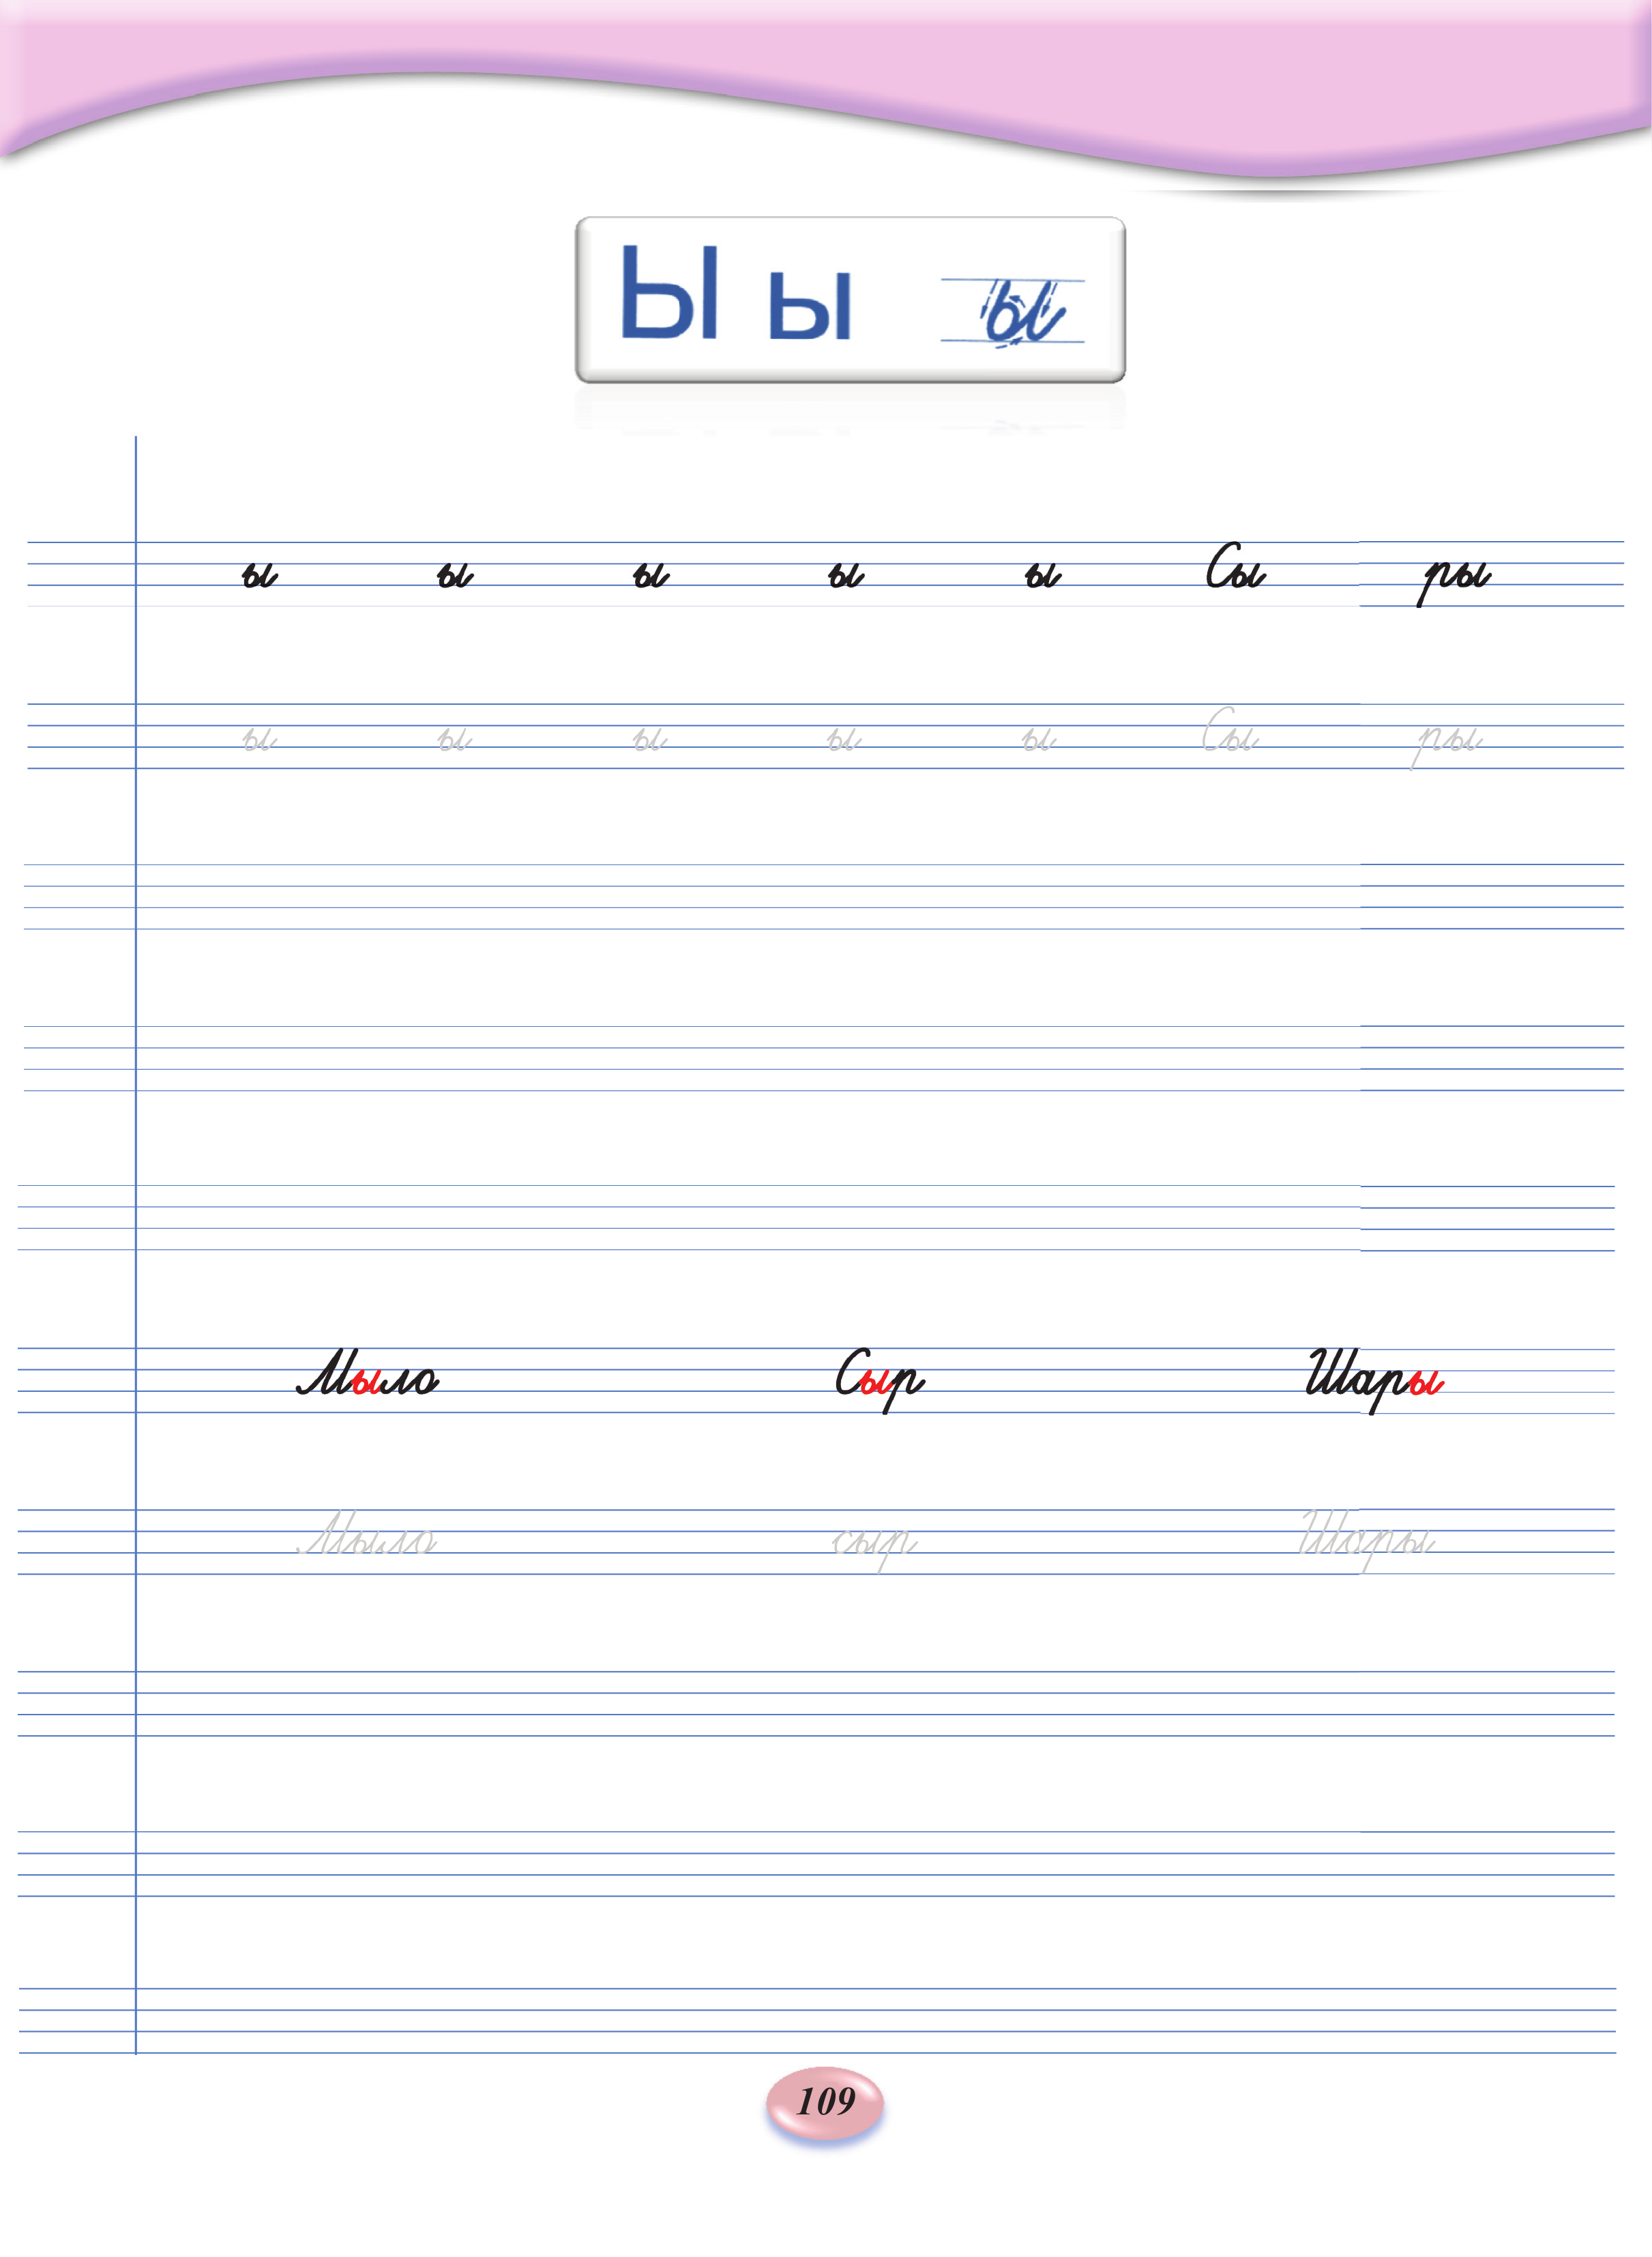 Ы ы ы
ы ы ы ы ы Сы ры
ы ы ы ы ы Сы ры
Мыло Сыр Шары
Мыло сыр Шары
109